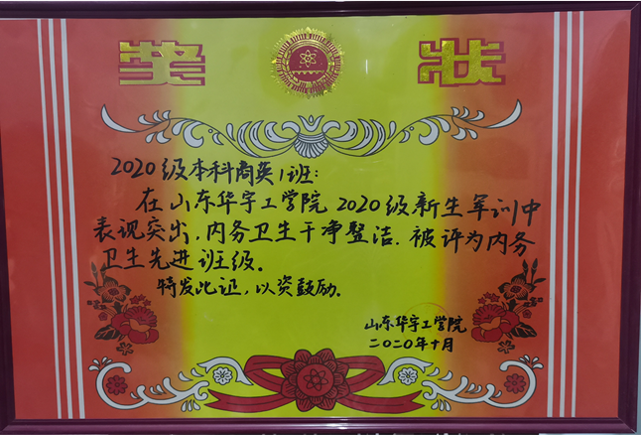 奖 状
2020级本科商英1班:
在山东华宇工学院2020级新生军训中
表现突出,内务卫生干净整洁.被评为内务
卫生先进班级。
特发此证,以资鼓励。
山东华宇工学院
二〇二〇年十月